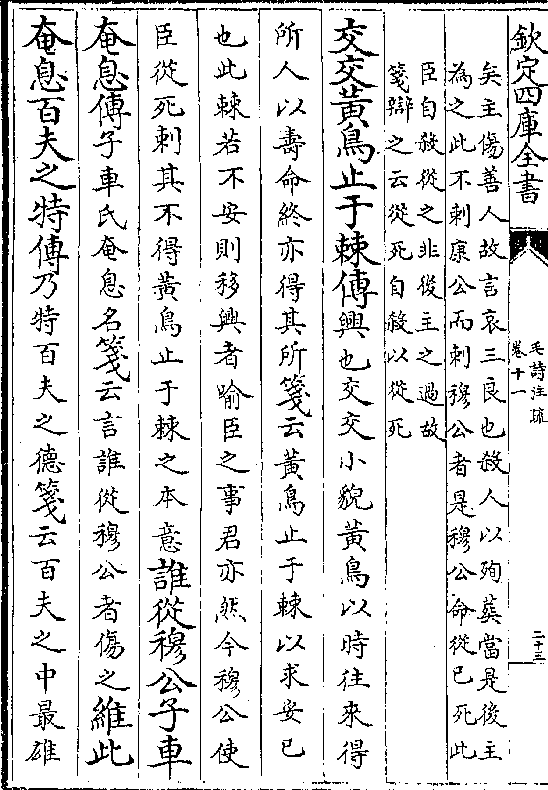 欽定四庫全書
毛詩注疏
卷十一
二十三
矣主傷善人故言哀三良也殺人以殉葬當是後主
為之此不刺康公而刺穆公者是穆公命從已死此
臣自殺從之非後主之過故
箋辯之云從死自殺以從死
交交黃鳥止于棘傳興也交交小貌黃鳥以時往來得
所人以壽命終亦得其所箋云黃鳥止于棘以求安已
也此棘若不安則移興者喻臣之事君亦然今穆公使
臣從死刺其不得黃鳥止于棘之本意誰從穆公子車
奄息傳子車氏奄息名箋云言誰從穆公者傷之維此
奄息百夫之特傳乃特百夫之德箋云百夫之中最雄